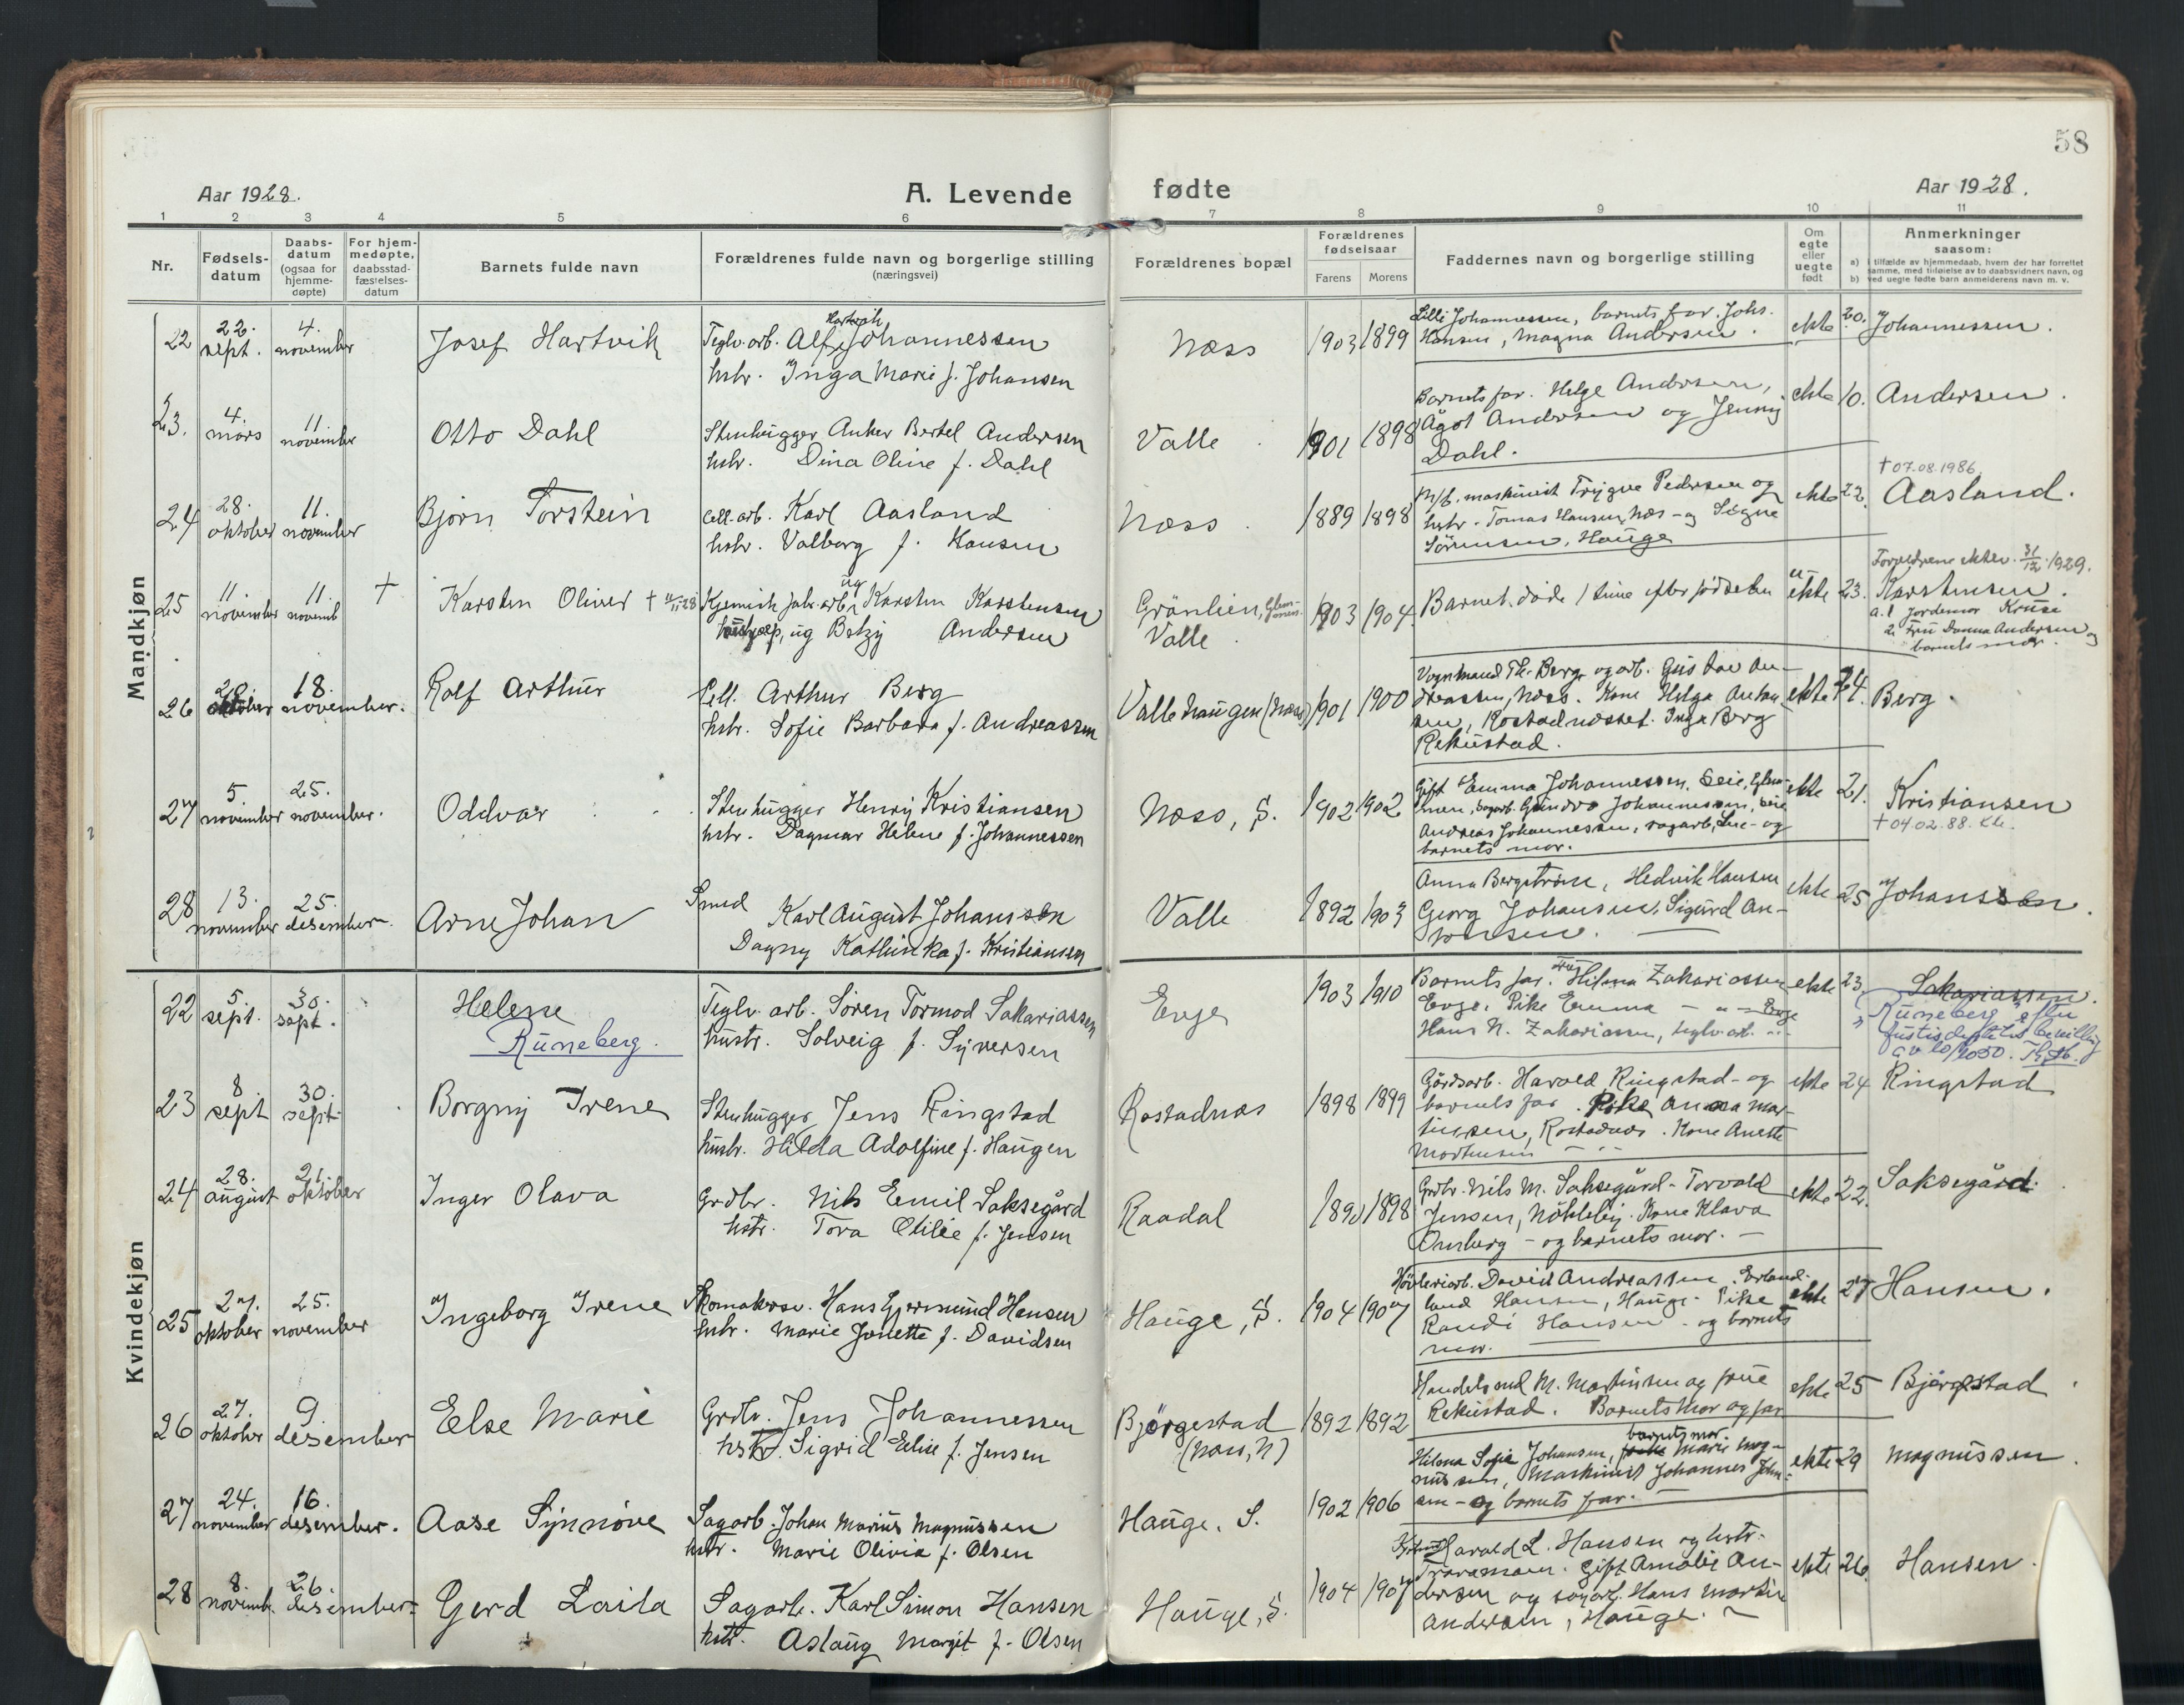 58
Aar 1928.
A. Levende
fødte
Aar 1928.
1 2 3 4 5 6 7 8 9 10 11
Nr.
Fødsels-
datum
Daabs-
datum
(ogsaa for
hjemme-
døpte)
For hjem-
medøpte,
daabsstad-
fæstelses-
datum
Barnets fulde navn
Forældrenes fulde navn og borgerlige stilling
(næringsvei)
Forældrenes bopæl
Forældrenes
fødselsaar
Farens
Morens
Faddernes navn og borgerlige stilling
Om
egte
eller
uegte
født
Anmerkninger
saasom:
a) i tilfælde av hjemmedaab, hvem der har forrettet
samme, med tilføielse av to daabsvidners navn, og
b) ved uegte fødte barn anmelderens navn m. v.
Mandkjøn
22
22. sept.
4. november
Josef Hartvik
Teglv. arb. Alf Hartvik Johannessen
hstr. Inga Marie f. Johansen
Næss
1903 1899
Lilli Johannessen, barnets far. Johs.
Hansen, Magna Andersen.
ekte
20. Johannessen.
23.
4. mars
11. november
Otto Dahl
Stenhugger Anker Bertel Andersen
hstr. Dina Oline f. Dahl
Valle
1901 1898
Barnets far. Helge Andersen,
Ågot Andersen og Jenny
Dahl.
ekte
10. Andersen.
24
28. oktober
11. november
Bjørn Torstein
Cell. arb. Karl Aasland
hstr. Valborg f. Hansen
Næss.
1889 1898
M/f. maskinist Trygve Pedersen og
hstr. Tomas Hansen, Næs - og Signe
Sørensen, Hauge
ekte
† 07.08.1986
22. Aasland.
25
11. november
11. novemb
†
Karsten Oliver † 11/11-28
Kjemisk fabr. arb. ug Karsten Karstensen
hushjælp, ug Betzy Andersen
Grönlien, Glemmen.
Valle
1903 1904
Barnet døde 1 time efter fødselen
u-
ekte
Foreldrene ektev. 31/12 1929.
23. Karstensen.
a. 1 Jordemor Kruse
2. Fru Donna Andersen og
barnets mor.
26
28. oktober
18. november.
Rolf Arthur
Cell. Arthur Berg
hstr. Sofie Barbara f. Andreassen
Vallehaugen (Næss)
1901 1900
Vognmand Th. Berg og arb. Gustav An-
dreassen, Næss. Kone Helga Anton
sen, Rostadnæsset. Inga Berg
Rekustad.
ekte
24. Berg.
27
5. november
25. november.
Oddvar
Stenhugger Henry Kristiansen
hstr. Dagmar Helene f. Johannessen
Næss, S.
1902 1902
Gift Emma Johannessen, Seie, Glem-
men, sagarb. Gundro Johannessen, Seie
Andreas Johannessen, sagarb, Lie - og
barnets mor.
ekte
21. Kristiansen
† 04.02.88.
28
13. november
25. desember.
Arne Johan
Smed Karl August Johansson
Dagny Kathinka f. Kristiansen
Valle
1892 1903
Anna Bergstrøm, Hedvik Hansen
Georg Johansen, Sigurd An-
tonsen.
ekte
25 Johansson.
Kvindekjøn
22
5. sept.
30. sept.
Helene
Runeberg.
Teglv. arb. Søren Tormod Sakariassen
hustr. Solveig f. Syversen
Enge
1903 1910
Barnets far. Fru Hilma Zakariassen
Enge. Pike Emma — " — Enge
Hans N. Zakariassen, teglv. arb. - " -
ekte
23. Sakariassen.
Runeberg efter
Justisdeptets bevilling
av 20/9 1950.
23
8 sept
30. sept
Borgny Irene
Stenhugger Jens Ringstad
hustr. Hilda Adolfine f. Haugen
Rostadnæs
1898 1899
Gårdsarb. Harald Ringstad - og
barnets far. Pike Anna Mar-
tinsen, Rostadnæs. Kone Anette
Mortensen
ekte
24 Ringstad
24
28. august
21. oktober
Inger Olava
Grdbr. Nils Emil Saksegård
hstr. Tora Otilie f. Jensen
Raadal
1890 1898
Grdbr. Nils M. Saksegård - Torvald
Jensen, Nökleby. Kone Klara
Omberg - og barnets mor. —
ekte
22. Saksegård.
25
27. oktober
25. november
Ingeborg Irene
Skomakersv. Hans Germund Hansen
hstr. Marie Jonette f. Davidsen
Hauge, S.
1904 1907
Høvleriarb. David Andreassen. Erland.
land Hansen, Hauge. Pike
Randi Hansen - og barnets
mor.
ekte
27 Hansen.
26
27. oktober
9. desember
Else Marie
Grdbr. Jens Johannessen
hstr. Sigrid Elise f. Jensen
Bjørgestad
(Næss, N)
1892 1892
Handelsmd M. Martinsen og frue
Rekustad. Barnets mor og far
ekte
25 Bjørgestad.
27
24. november
16. desember.
Aase Synnøve
Sagarb. Johan Marius Magnussen
hstr. Marie Olivia f. Olsen
Hauge. S.
1902 1906
Hilma Sofie Johansen, barnets mor. Marie Mag-
nussen, Maskinist Johannes Johan-
sen - og barnets far. —
ekte
29 Magnussen.
28
8. novemb.
26. desember.
Gerd Laila
Sagarb. Karl Simon Hansen
hstr. Aslaug Margit f. Olsen
Hauge, S.
1904 1907
Harald L. Hansen og hstr.
Gift Amalie An-
dersen og sagarb. Hans Martin
Andersen, Hauge. ~
ekte
26. Hansen.